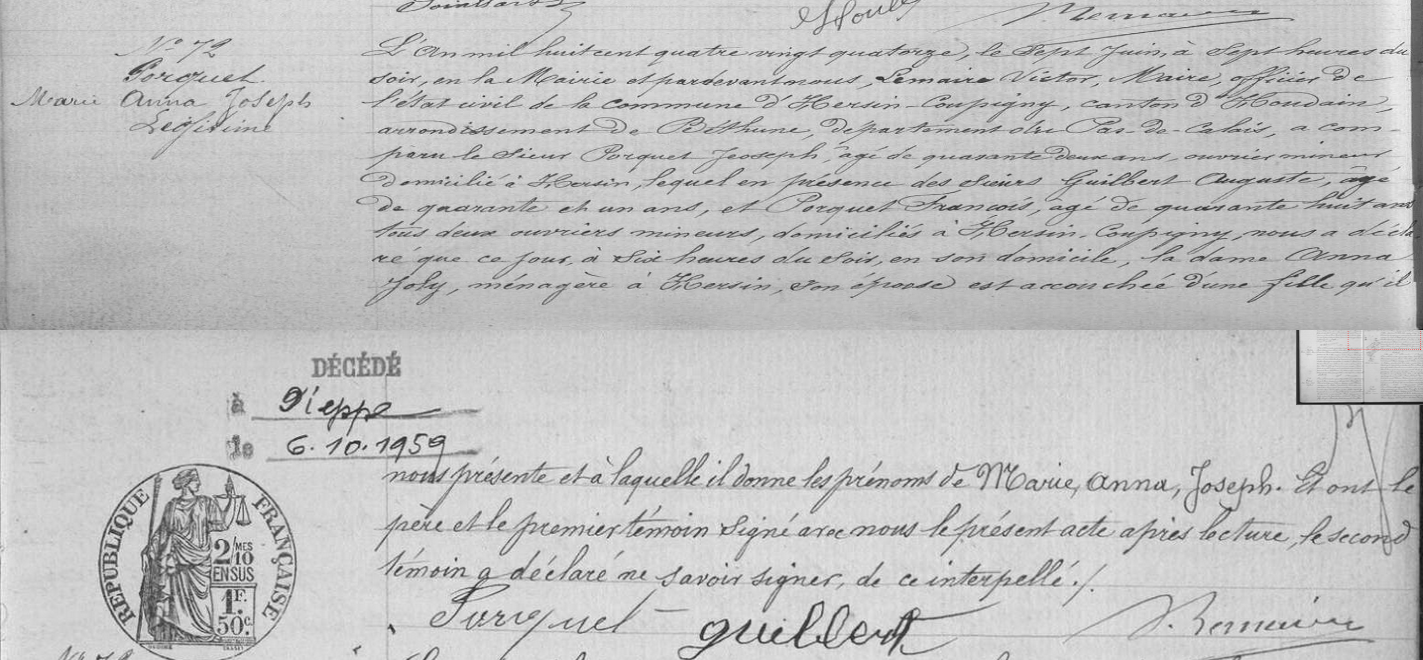 Nº 72
Porquet
Marie Anna Joseph
Légitime
L'An mil huit cent quatre vingt quatorze, le Sept Juin, à Sept heures du
soir, en la Mairie et pardevant nous, Lemaire Victor, Maire, officier de
l'état civil de la commune d'Hersin-Coupigny, canton d'Houdain,
arrondissement de Béthune, département du Pas-de-Calais, a com-
paru le Sieur Porquet Jeoseph, âgé de quarante deux ans, ouvrier mineur
domicilié à Hersin, lequel en présence des Sieurs Guilbert Auguste, agé
de quarante et un ans, et Porquet Francois, âgé de quarante huit ans
tous deux ouvriers mineurs, domiciliés à Hersin-Coupigny, nous a décla
ré que ce jour, à Six heures du Soir, en son domicile, la dame Anna
Joly, ménagère à Hersin, son épouse est accouchée d'une fille qu'il
DÉCÉDÉ
à Dieppe
le 6.10.1959
nous présente et à laquelle il donne les prénoms de Marie, Anna, Joseph. Et ont le
père et le premier témoin signé avec nous le présent acte après lecture, le second
témoin a déclaré ne savoir signer, de ce interpellé./.
RÉPUBLIQUE FRANÇAISE
2/10 MES
EN SUS
1F.
50c.
Porquet guilbert V. Lemaire